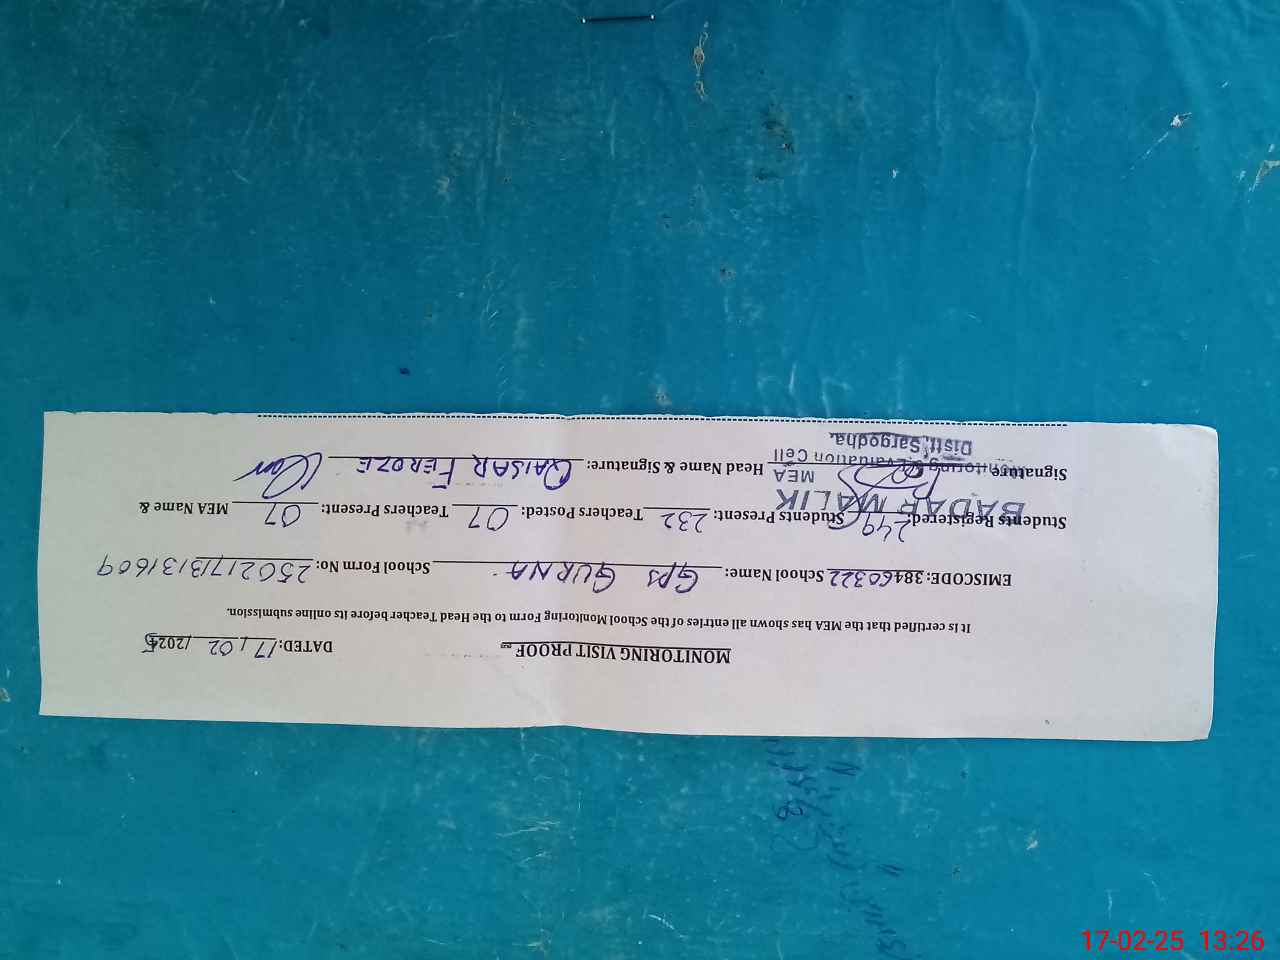 MONITORING VISIT PROOF
DATED: 17 / 02 /2025
It is certified that the MEA has shown all entries of the School Monitoring Form to the Head Teacher before its online submission.
EMISCODE: 38460322 School Name: GPS GURNA School Form No: 250217131609
Students Registered: 249 Students Present: 232 Teachers Posted: 07 Teachers Present: 07 MEA Name &
BADAR MALIK
MEA
Signature Head Name & Signature: QAISAR FEROZE
Monitoring & Evaluation Cell
Distt. Sargodha.
17-02-25 13:26